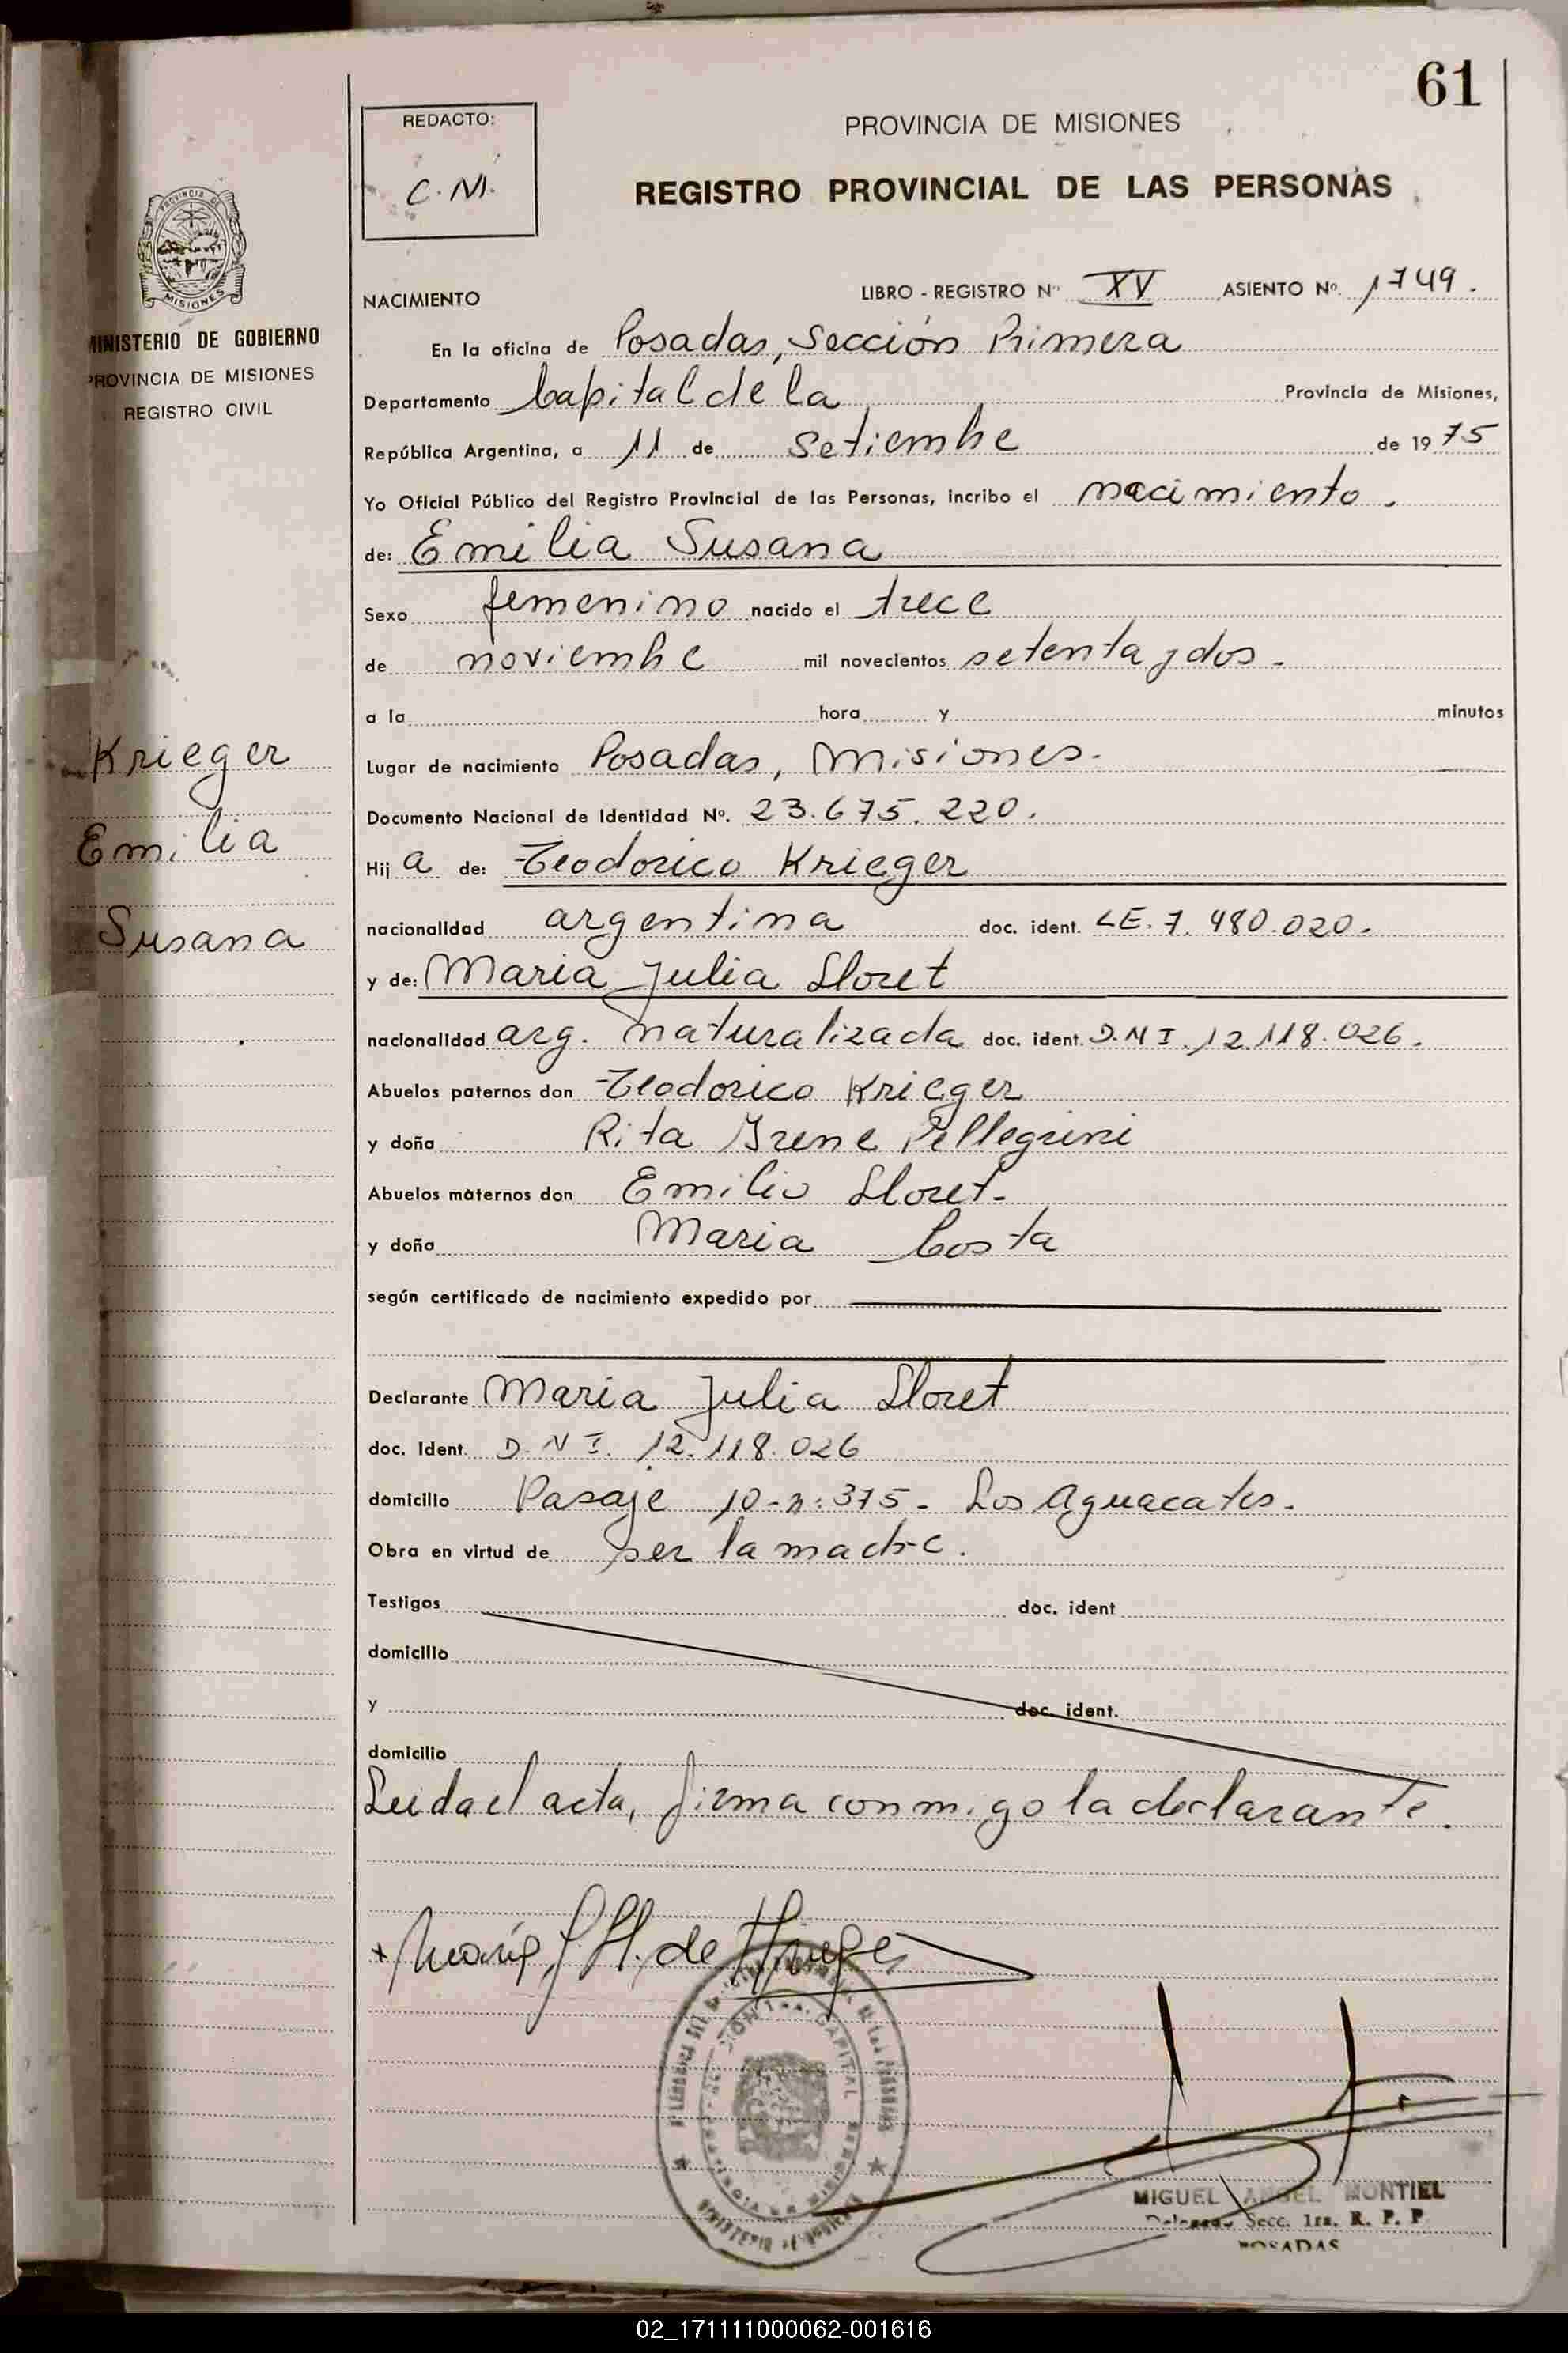 61
REDACTO:
C. M.
PROVINCIA DE MISIONES
REGISTRO PROVINCIAL DE LAS PERSONAS
PROVINCIA DE
MISIONES
MINISTERIO DE GOBIERNO
PROVINCIA DE MISIONES
REGISTRO CIVIL
NACIMIENTO LIBRO - REGISTRO Nº XV ASIENTO Nº. 1749.
En la oficina de Posadas, Sección Primera
Departamento Capital de la Provincia de Misiones,
República Argentina, a 11 de setiembre de 1975
Yo Oficial Público del Registro Provincial de las Personas, incribo el nacimiento.
de: Emilia Susana
Sexo femenino nacido el trece
de noviembre mil novecientos setenta y dos.
a la hora y minutos
Lugar de nacimiento Posadas, Misiones.
Documento Nacional de Identidad Nº. 23.675.220.
Hij a de: Teodorico Krieger
nacionalidad argentina doc. ident. LE. 7.480.020.
y de: Maria Julia Lloret
nacionalidad arg. naturalizada doc. ident. D.N I. 12.118.026.
Abuelos paternos don Teodorico Krieger
y doña Rita Irene Pellegrini
Abuelos maternos don Emilio Lloret.
y doña Maria Costa
según certificado de nacimiento expedido por
Declarante Maria Julia Lloret
doc. Ident. D. N I. 12.118.026
domicilio Pasaje 10-n: 375- Los Aguacates.
Obra en virtud de ser la madre.
Testigos doc. ident
domicilio
y doc. ident.
domicilio
Leida el acta, firma conmigo la declarante.
Krieger
Emilia
Susana
CAPITAL
MIGUEL ANGEL MONTIEL
Delegado Secc. 1ra. R. P. P
POSADAS
02_171111000062-001616